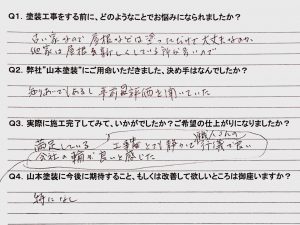 Q1. 塗装工事をする前に、どのようなことでお悩みになられましたか?
古い家なので屋根などは塗っただけで大丈夫なのか
他家は屋根を新しくしている所が多いので
Q2. 弊社"山本塗装"にご用命いただきました、決め手はなんでしたか?
知り合いでもあるし 事前 評価を聞いていた
Q3. 実際に施工完了してみて、いかがでしたか?ご希望の仕上がりになりましたか?
満足している 工事もとても静かで 職人さんの行儀が良い
会社の 輪が良いと感じた
Q4. 山本塗装に今後に期待すること、もしくは改善して欲しいところは御座いますか?
特になし